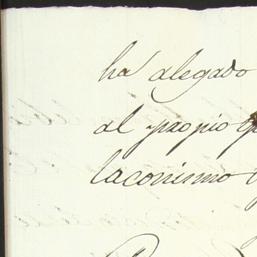 ha alegado
al propio
laconismo